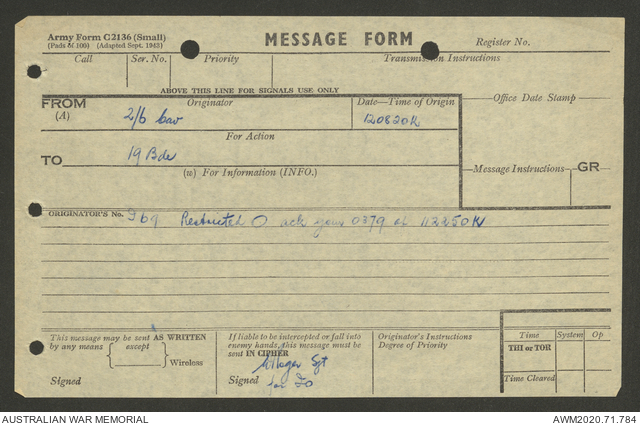 Army Form C2136 (Small) MESSAGE FORM Register No.
(Pads of 100) (Adapted Sept. 1943)
Call Ser. No. Priority Transmission Instructions
ABOVE THIS LINE FOR SIGNALS USE ONLY
FROM Originator Date—Time of Origin Office Date Stamp
(A) 2/6 Cav 120820K
For Action
TO 19 Bde
(w) For Information (INFO.) Message Instructions GR
ORIGINATOR'S No. Restricted O ack your 0379 at 112250K
This message may be sent AS WRITTEN If liable to be intercepted or fall into Originator's Instructions Time System Op
by any means except enemy hands, this message must be Degree of Priority THI or TOR
Wireless sent IN CIPHER
Sgt
Signed Signed for IO Time Cleared
AUSTRALIAN WAR MEMORIAL AWM2020.71.784